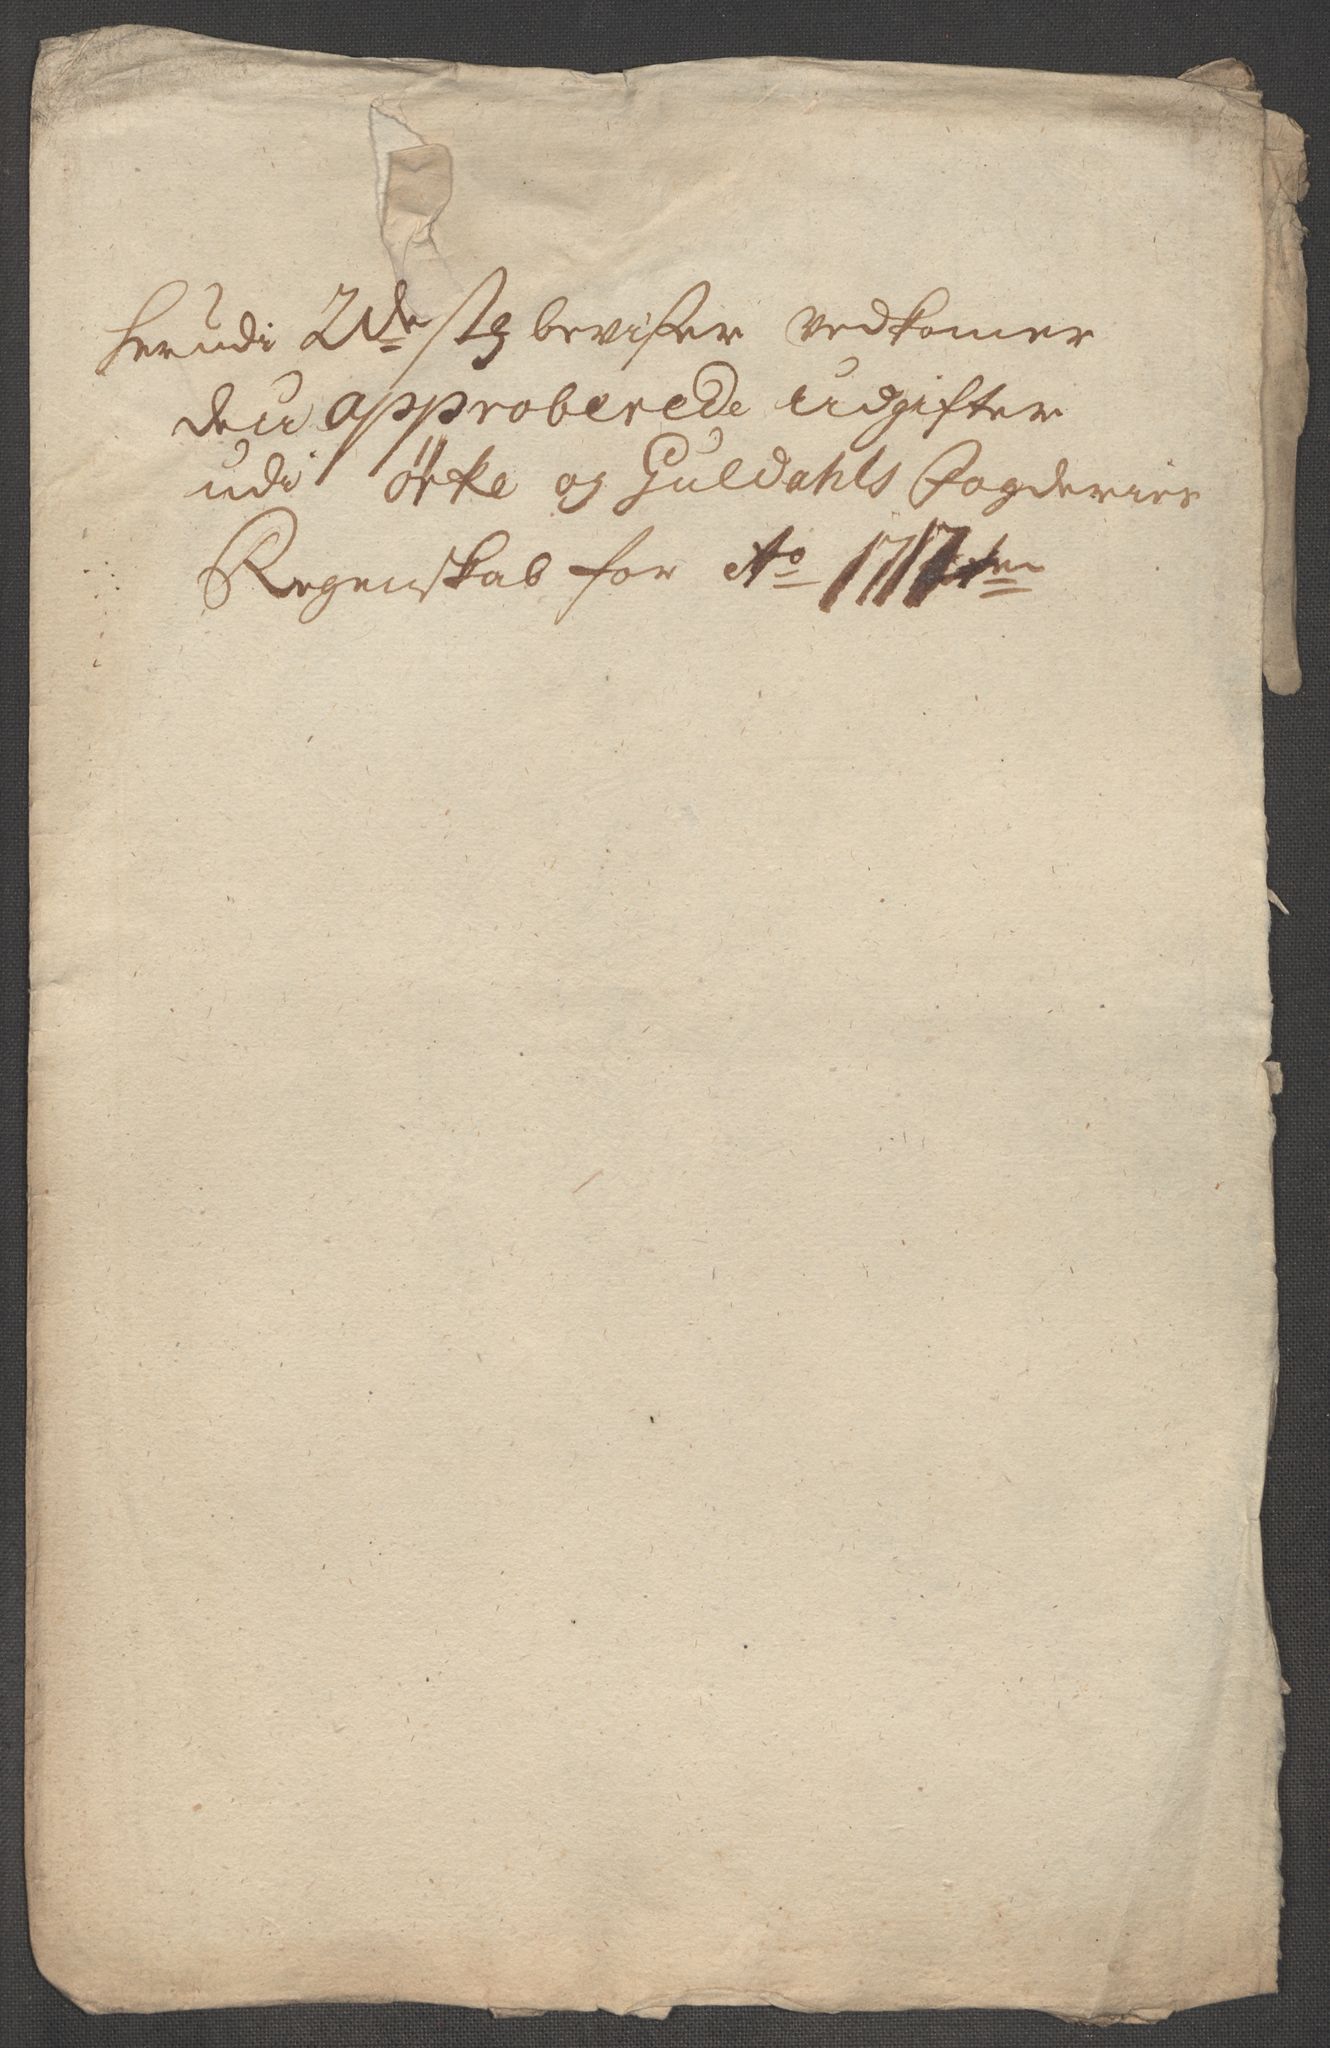 Herudi 2de stk beviser vedkomer
den approberede udgifter
udi Örke og Guldahls Fogderier
Regenskab for Ao 1717ten